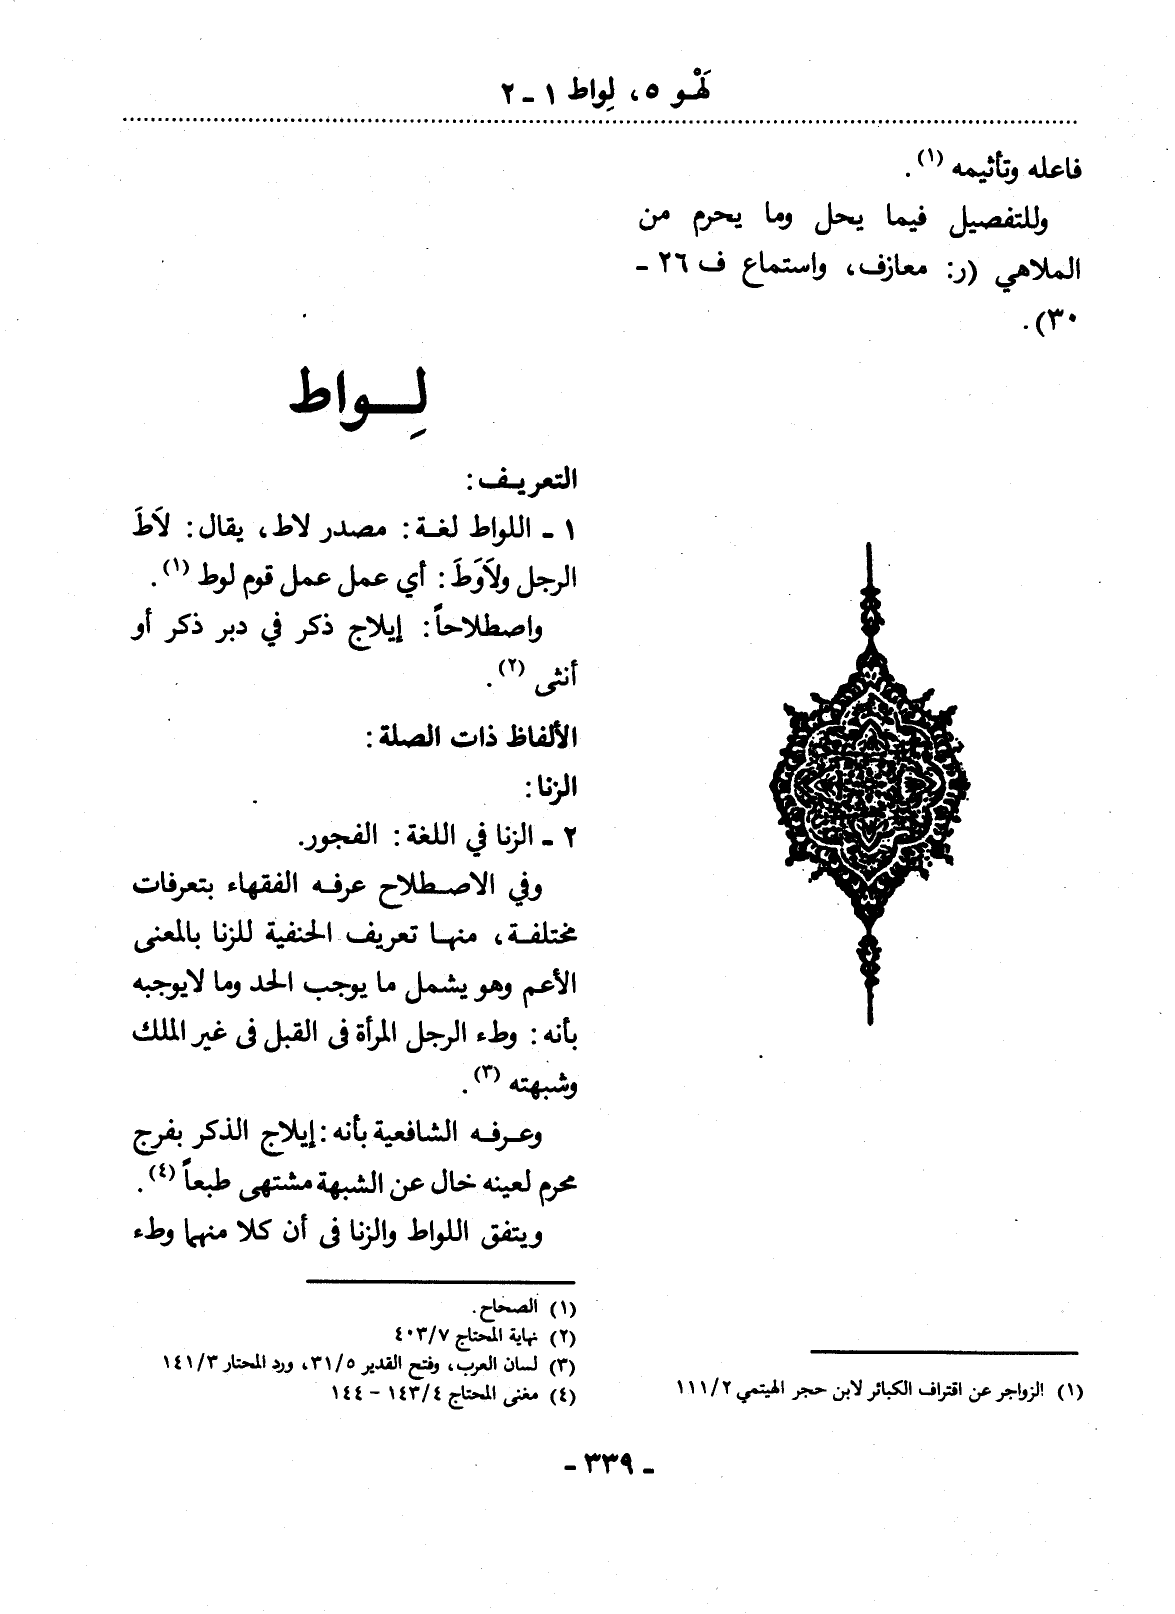 لَهْو ٥، لِواط ١ ـ ٢
فاعله وتأثيمه (١).
وللتفصيل فيما يحل وما يحرم من
الملاهي (ر: معازف، واستماع ف ٢٦ ـ
٣٠).
(١) الزواجر عن اقتراف الكبائر لابن حجر الهيتمي ٢/ ١١١
لِــواط
التعريف:
١ ـ اللواط لغة: مصدر لاط، يقال: لاَطَ
الرجل ولاَوَطَ: أي عمل عمل قوم لوط (١).
واصطلاحاً: إيلاج ذكر في دبر ذكر أو
أنثى (٢).
الألفاظ ذات الصلة:
الزنا:
٢ ـ الزنا في اللغة: الفجور.
وفي الاصطلاح عرفه الفقهاء بتعرفات
مختلفة، منها تعريف الحنفية للزنا بالمعنى
الأعم وهو يشمل ما يوجب الحد وما لايوجبه
بأنه: وطء الرجل المرأة فى القبل فى غير الملك
وشبهته (٣).
وعرفه الشافعية بأنه: إيلاج الذكر بفرج
محرم لعينه خال عن الشبهة مشتهى طبعاً (٤).
ويتفق اللواط والزنا فى أن كلا منهما وطء
(١) الصحاح.
(٢) نهاية المحتاج ٧/ ٤٠٣
(٣) لسان العرب، وفتح القدير ٥/ ٣١، ورد المحتار ٣/ ١٤١
(٤) مغنى المحتاج ٤/ ١٤٣ - ١٤٤
ـ ٣٣٩ ـ